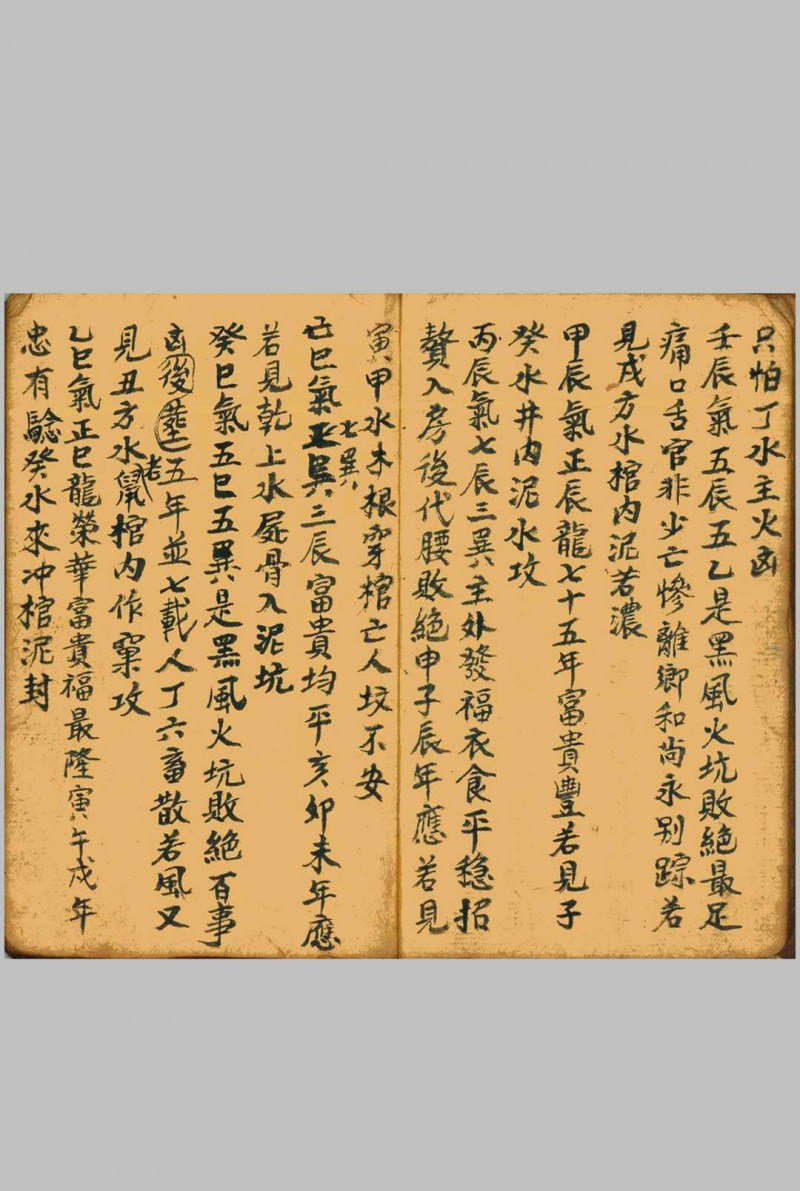 只怕丁水主火凶
壬辰氣五辰五乙是黑風火坑敗絕最足
痛口舌官非少亡慘離鄉和尚永別踪若
見戌方水棺內泥若濃
甲辰氣正辰龍七十五年富貴豐若見子
癸水井內泥水攻
丙辰氣七辰三巽主外發福衣食平穩招
贅入房後代腰敗絕申子辰年應若見
寅甲水木根穿棺亡人坟不安
七巽
亡巳氣三辰富貴均平亥卯未年應
若見乾上水屍骨入泥坑
癸巳氣五巳五巽是黑風火坑敗絕百事
凶後塟五年並七載人丁六畜散若風又
見丑方水鼠棺內作窠攻
老
乙巳氣正巳龍榮華富貴福最隆寅午戌年
忠有騐癸水來冲棺泥封